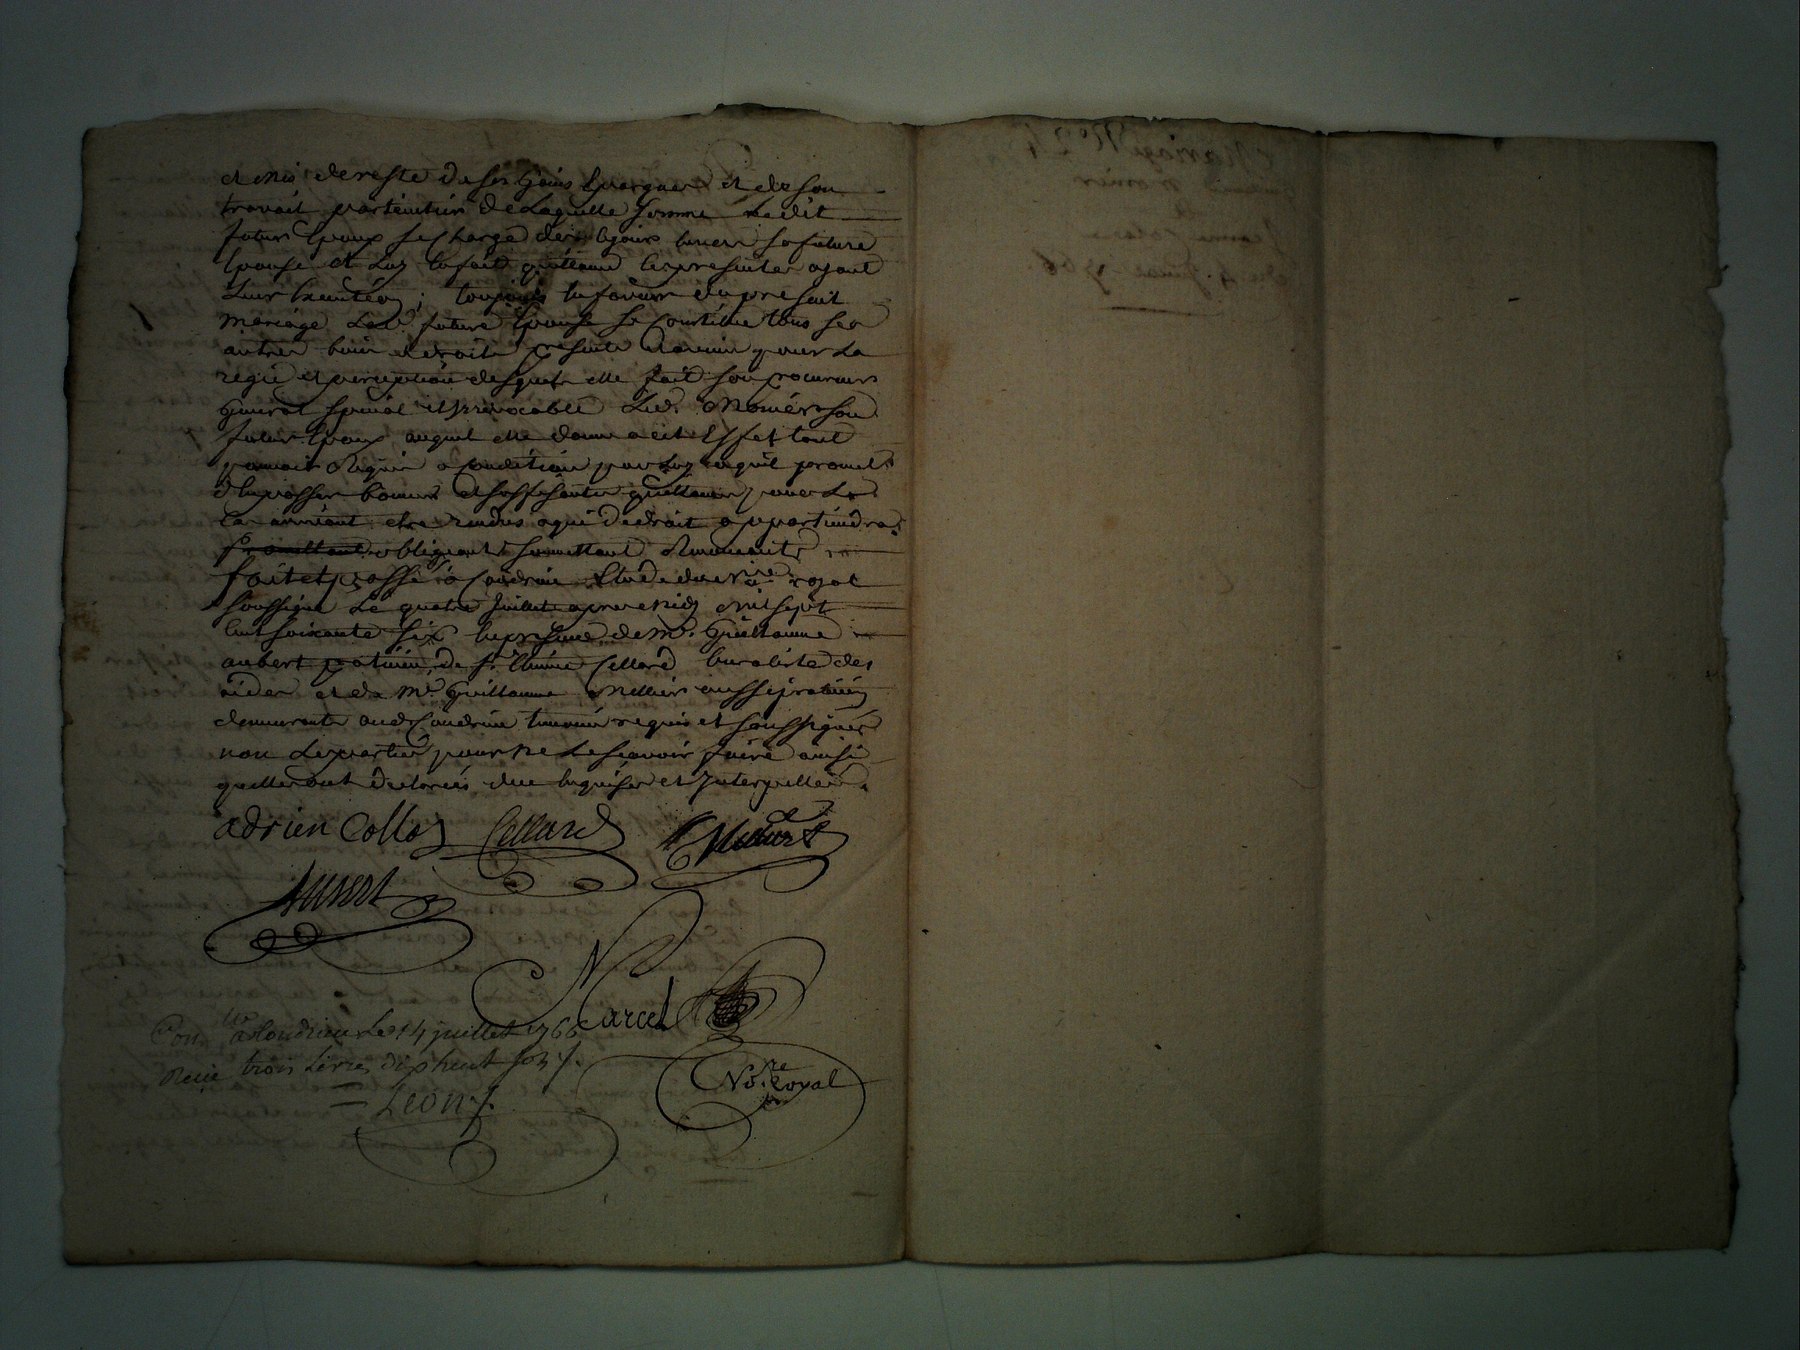 et mis de reste de ses gains Epargnes et de son
travail particulier de Laquelle somme Ledit
futur Epoux se Charge des a jours envers sa future
Epouse et Luy En fait quittance Les presentes ayant
Leur ; toujours En faveur du present
mariage Lad. future Epouse se Constitue tous ses
autres biens et droits presents et avenir pour La
regie et perception desquels elle fait son procureur
General special et irrevocable Led. son
futur Epoux auquel elle donne a cet Effet tout
pouvoir Requis a Condition par Luy ainsy qu'il promet
d'En passer bonnes et suffisantes quittances pour Le
Cas arrivant etre rendus a qui de droit appartiendra
obligeant soumettant Renonceant
fait et passé a Condrieu Etude du n.re royal
soussigné Le quatre Juillet apres midy mil sept
Cent soixante six En presence de M.e Guillaume
aubert praticien de s.r Cellard buraliste des
aides et de M.e Guillaume aussi praticien
demeurants aud. Condrieu temoins requis et soussignés
non Les parties pour ne Le sçavoir faire ainsi
qu'elles ont declarés due Enquises et Interpellées.
adrien Collo Cellard
Aubert
Marcel
No.re Royal
Con.lé a Condrieu Le 14 juillet 1766
Reçu trois Livres dix huit sols
Leon
Mariage N° 24
Du 4. Juillet 1766.